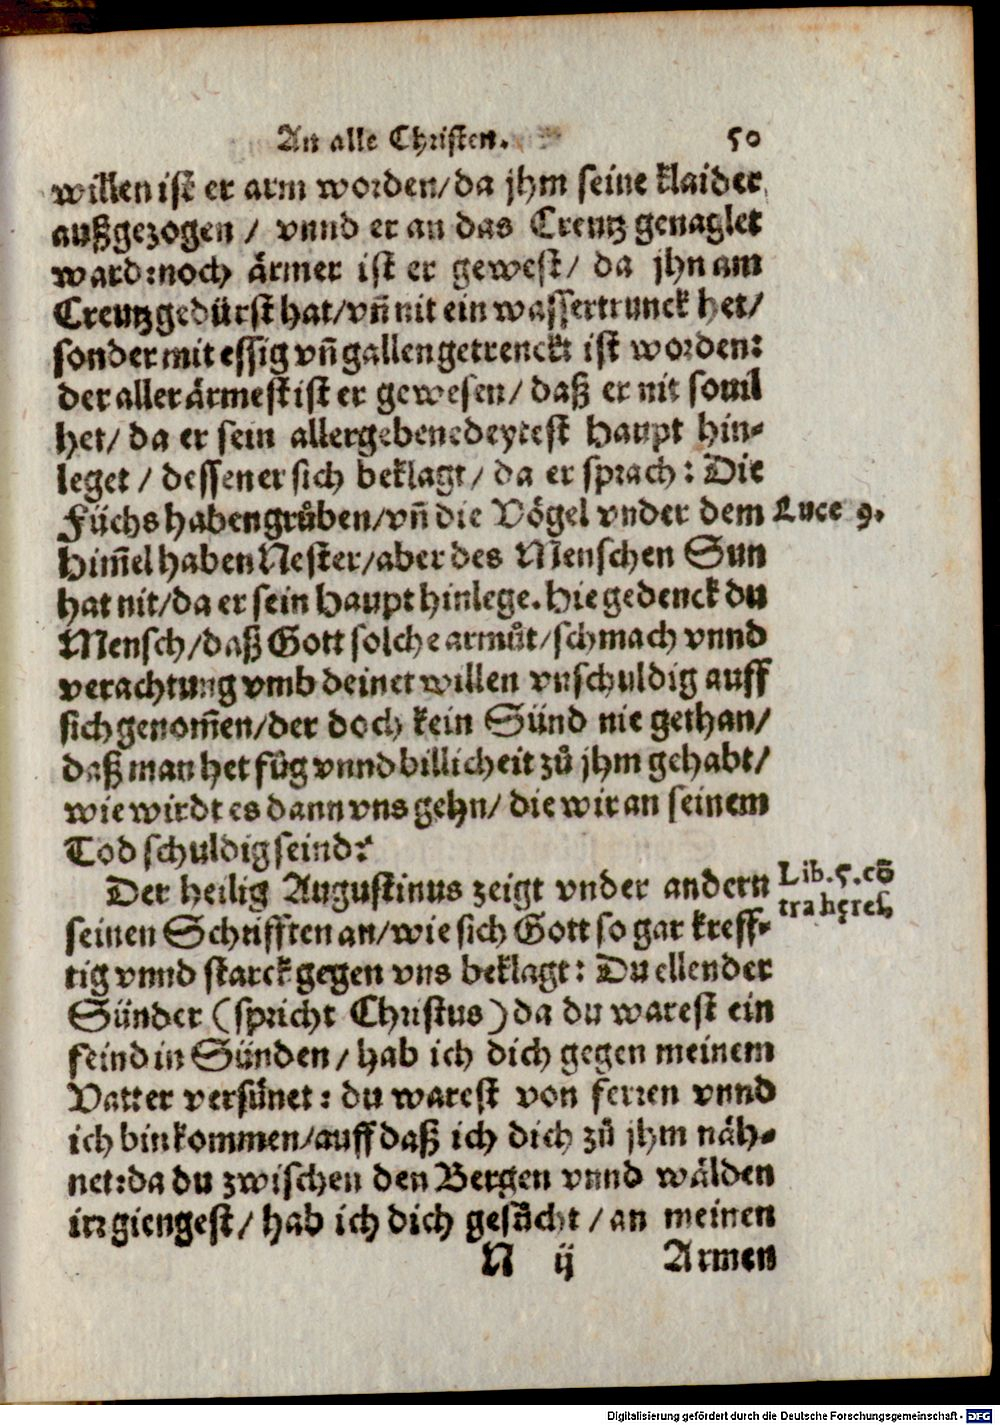 An alle Christen. 50
willen ist er arm worden/da jhm seine klaider
außgezogen / vnnd er an das Creutz genaglet
ward: noch ärmer ist er gewest/ da jhn am
Creutz gedürst hat/vñ nit ein wassertrunck het/
sonder mit essig vñ gallen getrenckt ist worden:
der aller ärmest ist er gewesen/ daß er nit souil
het/ da er sein allergebenedeytest Haupt hin-
leget / dessen er sich beklagt/ da er sprach: Die
Füchs haben grůben/vñ die Vögel vnder dem Luce 9.
Him̃el haben Nester/aber des Menschen Sun
hat nit/da er sein Haupt hinlege. Hie gedenck du
Mensch/daß Gott solche armůt/schmach vnnd
verachtung vmb deinet willen vnschuldig auff
sich genom̃en/der doch kein Sünd nie gethan/
daß man het fůg vnnd billicheit zů jhm gehabt/
wie wirdt es dann vns gehn/ die wir an seinem
Tod schuldig seind?
Der heilig Augustinus zeigt vnder andern Lib. 5. cõ
seinen Schrifften an/wie sich Gott so gar kreff- tra hęres.
tig vnnd starck gegen vns beklagt: Du ellender
Sünder (spricht Christus) da du warest ein
feind in Sünden/ hab ich dich gegen meinem
Vatter versünet: du warest von ferren vnnd
ich bin kommen/auff daß ich dich zů jhm näh-
net: da du zwischen den Bergen vnnd wälden
irr giengest/ hab ich dich gesůcht / an meinen
N ij Armen
Digitalisierung gefördert durch die Deutsche Forschungsgemeinschaft - DFG